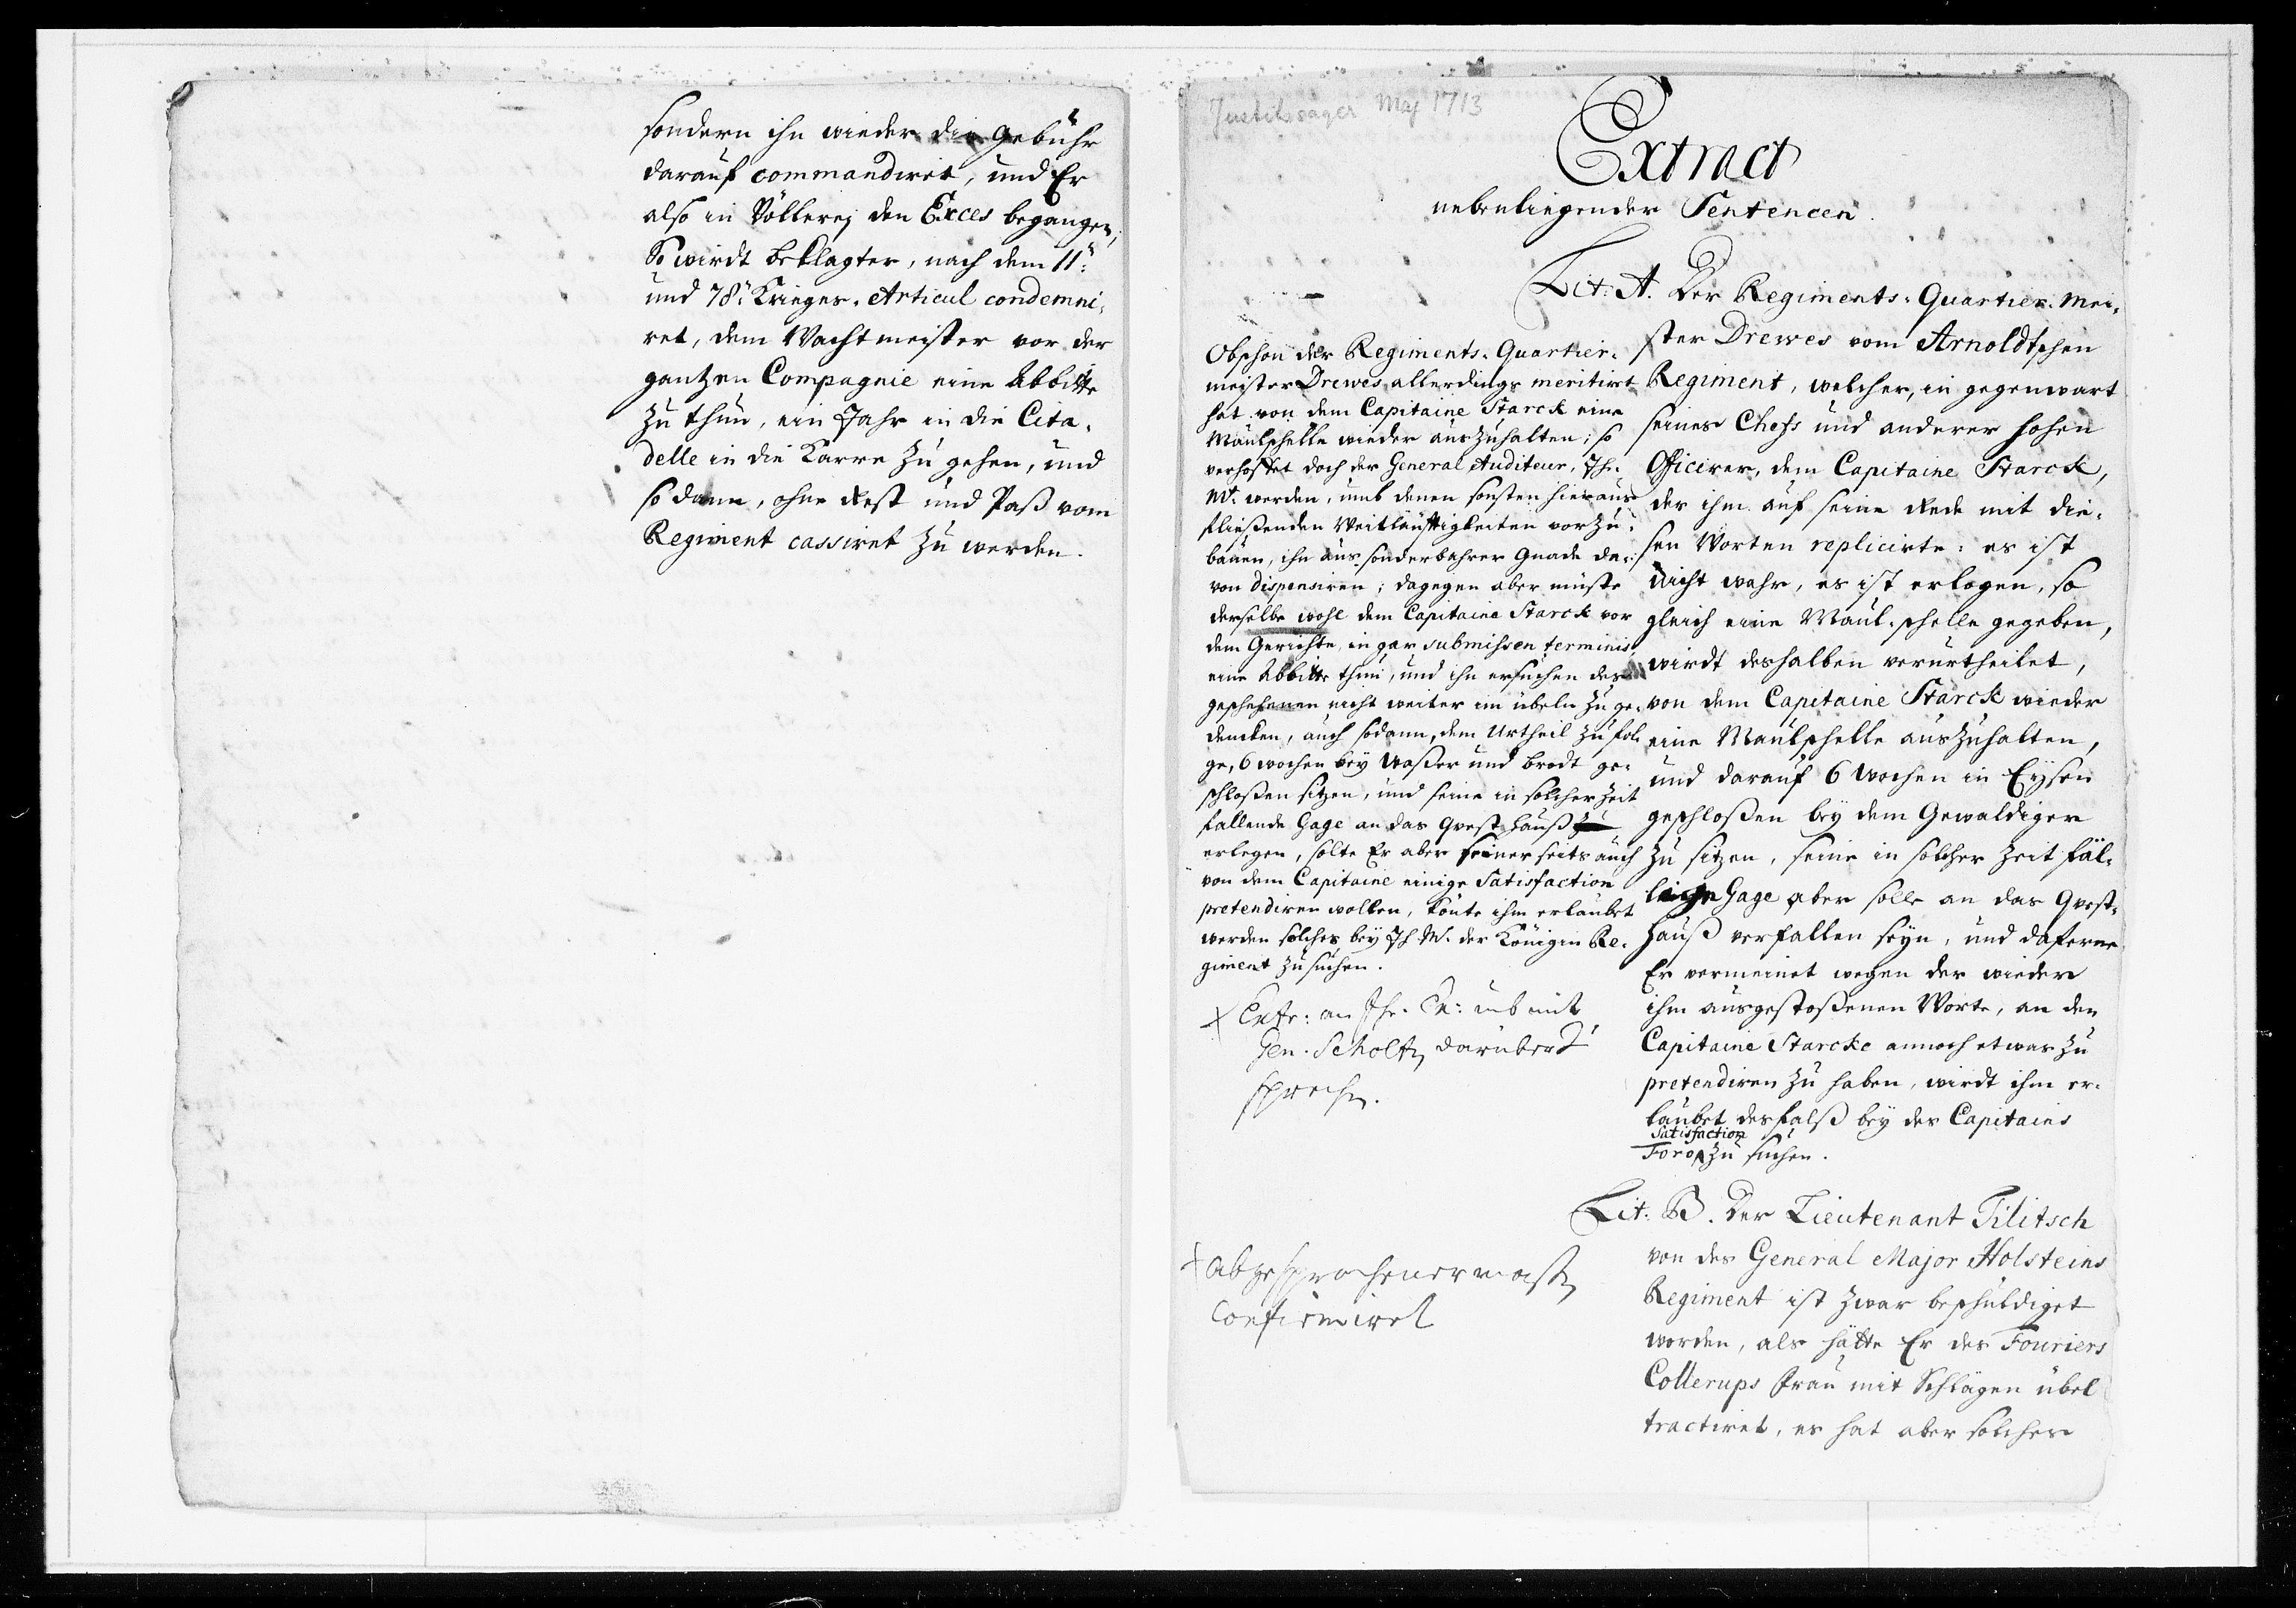 sondern ihn wieder die Gebühr
darauf commandiret, und Er
also in Völlerej den Exces begangen;
So wirdt Beklagter, nach dem 11:
und 78: Krieges-Articul condemni-
ret, dem Wachtmeister vor der
gantzen Compagnie eine Abbitte
zu thun, ein Jahr in die Cita-
delle in die Karre zu gehen, und
so dann, ohne Rest und Paß vom
Regiment cassiret zu werden.
Justitssager Maj 1713
Extract
nebenliegender Sentencen.
Lit: A. Der Regiments-Quartier-Mei-
ster Drewes vom Arnoldtschen
Regiment, welcher, in gegenwart
seines Chefs und anderer hohen
Officirer, dem Capitaine Starck,
der ihm auf seine Rede mit die-
sen Worten replicirte: es ist
nicht wahr, es ist erlogen, so
gleich eine Maul-schelle gegeben,
wirdt deshalben verurtheilet,
von dem Capitaine Starck wieder
eine Maulschelle auszuhalten,
und darauf 6 Wochen in Eysen
geschloßen bey dem Gewaldiger
zu sitzen, seine in solcher Zeit fäl-
lige Gage aber solle an das Qvest-
hauß verfallen seyn, und daferne
Er vermeinet wegen der wieder
ihm ausgestoßenen Worte, an den
Capitaine Starcke annoch etwas zu
pretendiren zu haben, wirdt ihm er-
laubet desfalß bey des Capitains
Satisfaction
Foro zu suchen.
Obschon der Regiments-Quartier-
meister Drewes allerdings meritirt
hat von dem Capitaine Starck eine
Maulschelle wieder auszuhalten; so
verhoffet doch der General Auditeur, Ihr.
Mt. werden, umb denen sonsten hieraus
fließenden Weitläufftigkeiten vorzu-
bauen, ihn aus sonderbahrer Gnade da-
von dispensiren; dagegen aber müste
derselbe wohl dem Capitaine Starck vor
dem Gerichte, in gar submissen terminis,
eine Abbitte thun, und ihn ersuchen des
geschehenen nicht weiter im übeln zu ge-
dencken, auch sodann, dem Urtheil zu fol-
ge, 6 wochen bey Waßer und brodt ge-
schloßen sitzen, und seine in solcher Zeit
fallende Gage an das Qvesthauß zu
erlegen, solte Er aber seiner seits auch
von dem Capitaine einige Satisfaction
pretendiren wollen, könte ihm erlaubet
werden solches bey Ih. M. der Königin Re-
giment zu suchen.
Gen. Scholtz darüber
sprechen.
Lit: B. Der Lieutenant Tilitsch
von des General Major Holsteins
Regiment ist zwar beschuldiget
worden, als hätte Er des Fouriers
Collerups Frau mit Schlägen übel
tractiret, es hat aber solches
abgesprochenermaßen
confirmiret